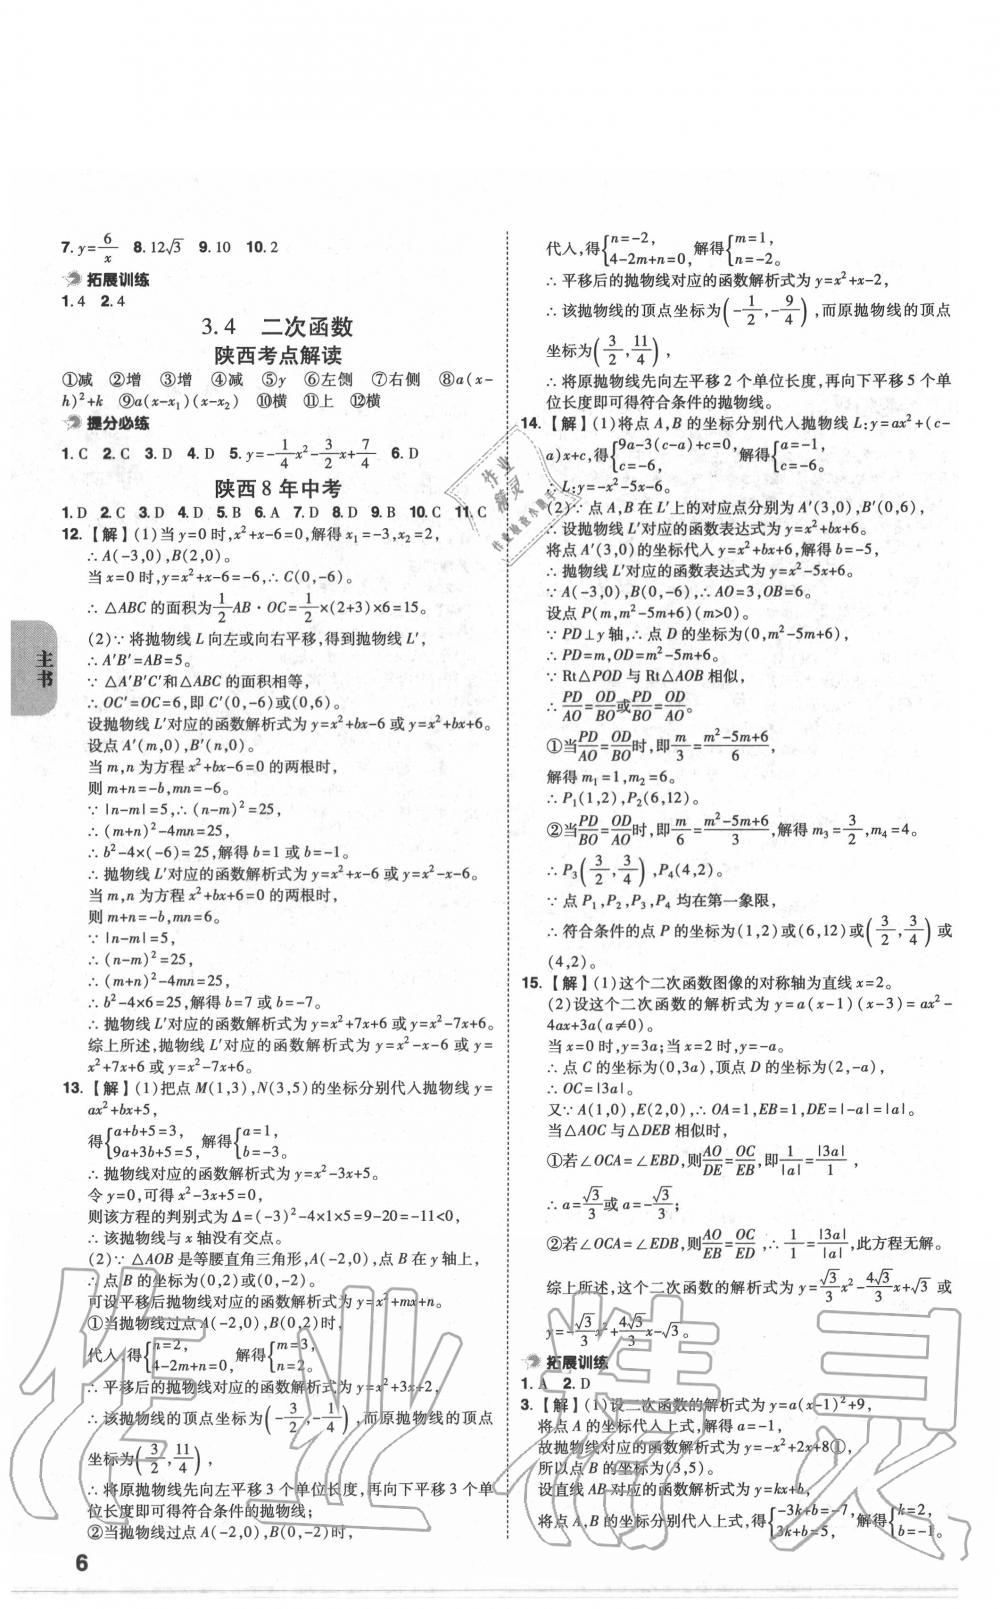 7. y=6/x  8. 12√3  9. 10  10. 2
拓展训练
1. 4  2. 4
3.4 二次函数
陕西考点解读
①减 ②增 ③增 ④减 ⑤y ⑥左侧 ⑦右侧 ⑧a(x-
h)²+k ⑨a(x-x₁)(x-x₂) ⑩横 ⑪上 ⑫横
提分必练
1. C  2. C  3. D  4. D  5. y=-1/4x²-3/2x+7/4  6. D
陕西8年中考
1. D  2. C  3. D  4. D  5. B  6. A  7. D  8. D  9. D  10. C  11. C
12.【解】(1)当y=0时,x²+x-6=0,解得x₁=-3,x₂=2,
∴A(-3,0),B(2,0)。
当x=0时,y=x²+x-6=-6,∴C(0,-6)。
∴△ABC的面积为1/2AB·OC=1/2×(2+3)×6=15。
(2)∵将抛物线L向左或向右平移,得到抛物线L′,
∴A′B′=AB=5。
∵△A′B′C′和△ABC的面积相等,
∴OC′=OC=6,即C′(0,-6)或(0,6)。
设抛物线L′对应的函数解析式为y=x²+bx-6或y=x²+bx+6。
设点A′(m,0),B′(n,0)。
当m,n为方程x²+bx-6=0的两根时,
则m+n=-b,mn=-6。
∵|n-m|=5,∴(n-m)²=25,
∴(m+n)²-4mn=25,
∴b²-4×(-6)=25,解得b=1或b=-1。
∴抛物线L′对应的函数解析式为y=x²+x-6或y=x²-x-6。
当m,n为方程x²+bx+6=0的两根时,
则m+n=-b,mn=6。
∵|n-m|=5,
∴(n-m)²=25,
∴(m+n)²-4mn=25,
∴b²-4×6=25,解得b=7或b=-7。
∴抛物线L′对应的函数解析式为y=x²+7x+6或y=x²-7x+6。
综上所述,抛物线L′对应的函数解析式为y=x²-x-6或y=
x²+7x+6或y=x²-7x+6。
13.【解】(1)把点M(1,3),N(3,5)的坐标分别代入抛物线y=
ax²+bx+5,
得{a+b+5=3, 9a+3b+5=5, 解得{a=1, b=-3。
∴抛物线对应的函数解析式为y=x²-3x+5。
令y=0,可得x²-3x+5=0,
则该方程的判别式为Δ=(-3)²-4×1×5=9-20=-11<0,
∴该抛物线与x轴没有交点。
(2)∵△AOB是等腰直角三角形,A(-2,0),点B在y轴上,
∴点B的坐标为(0,2)或(0,-2)。
可设平移后抛物线对应的函数解析式为y=x²+mx+n。
①当抛物线过点A(-2,0),B(0,2)时,
代入,得{n=2, 4-2m+n=0, 解得{m=3, n=2。
∴平移后的抛物线对应的函数解析式为y=x²+3x+2,
∴该抛物线的顶点坐标为(-3/2,-1/4),而原抛物线的顶点
坐标为(3/2,11/4),
∴将原抛物线先向左平移3个单位长度,再向下平移3个单
位长度即可得符合条件的抛物线;
②当抛物线过点A(-2,0),B(0,-2)时,
代入,得{n=-2, 4-2m+n=0, 解得{m=1, n=-2。
∴平移后的抛物线对应的函数解析式为y=x²+x-2,
∴该抛物线的顶点坐标为(-1/2,-9/4),而原抛物线的顶点
坐标为(3/2,11/4),
∴将原抛物线先向左平移2个单位长度,再向下平移5个单
位长度即可得符合条件的抛物线。
14.【解】(1)将点A,B的坐标分别代入抛物线L:y=ax²+(c-
a)x+c,得{9a-3(c-a)+c=0, c=-6, 解得{a=-1, c=-6,
∴L:y=-x²-5x-6。
(2)∵点A,B在L′上的对应点分别为A′(3,0),B′(0,6),
∴设抛物线L′对应的函数表达式为y=x²+bx+6。
将点A′(3,0)的坐标代入y=x²+bx+6,解得b=-5,
∴抛物线L′对应的函数表达式为y=x²-5x+6。
∵A(-3,0),B(0,-6),∴AO=3,OB=6。
设点P(m,m²-5m+6)(m>0)。
∵PD⊥y轴,∴点D的坐标为(0,m²-5m+6),
∴PD=m,OD=m²-5m+6。
∵Rt△POD与Rt△AOB相似,
∴PD/AO=OD/BO或PD/BO=OD/AO。
①当PD/AO=OD/BO时,即m/3=(m²-5m+6)/6,
解得m₁=1,m₂=6。
∴P₁(1,2),P₂(6,12)。
②当PD/BO=OD/AO时,即m/6=(m²-5m+6)/3,解得m₃=3/2,m₄=4。
∴P₃(3/2,3/4),P₄(4,2)。
∵点P₁,P₂,P₃,P₄均在第一象限,
∴符合条件的点P的坐标为(1,2)或(6,12)或(3/2,3/4)或
(4,2)。
15.【解】(1)这个二次函数图像的对称轴为直线x=2。
(2)设这个二次函数的解析式为y=a(x-1)(x-3)=ax²-
4ax+3a(a≠0)。
当x=0时,y=3a;当x=2时,y=-a。
∴点C的坐标为(0,3a),顶点D的坐标为(2,-a),
∴OC=|3a|。
又∵A(1,0),E(2,0),∴OA=1,EB=1,DE=|-a|=|a|。
当△AOC与△DEB相似时,
①若∠OCA=∠EBD,则AO/DE=OC/EB,即1/|a|=|3a|/1,
∴a=√3/3或a=-√3/3;
②若∠OCA=∠EDB,则AO/EB=OC/ED,∴1/1=|3a|/|a|,此方程无解。
综上所述,这个二次函数的解析式为y=√3/3x²-4√3/3x+√3或
y=-√3/3x²+4√3/3x-√3。
拓展训练
1. A  2. D
3.【解】(1)设二次函数的解析式为y=a(x-1)²+9,
将点A的坐标代入上式,解得a=-1,
故抛物线对应的函数解析式为y=-x²+2x+8①,
所以点B的坐标为(3,5)。
设直线AB对应的函数解析式为y=kx+b,
将点A,B的坐标分别代入上式,得{-3k+b=-7, 3k+b=5, 解得{k=2, b=-1。
主书
6
作业精灵